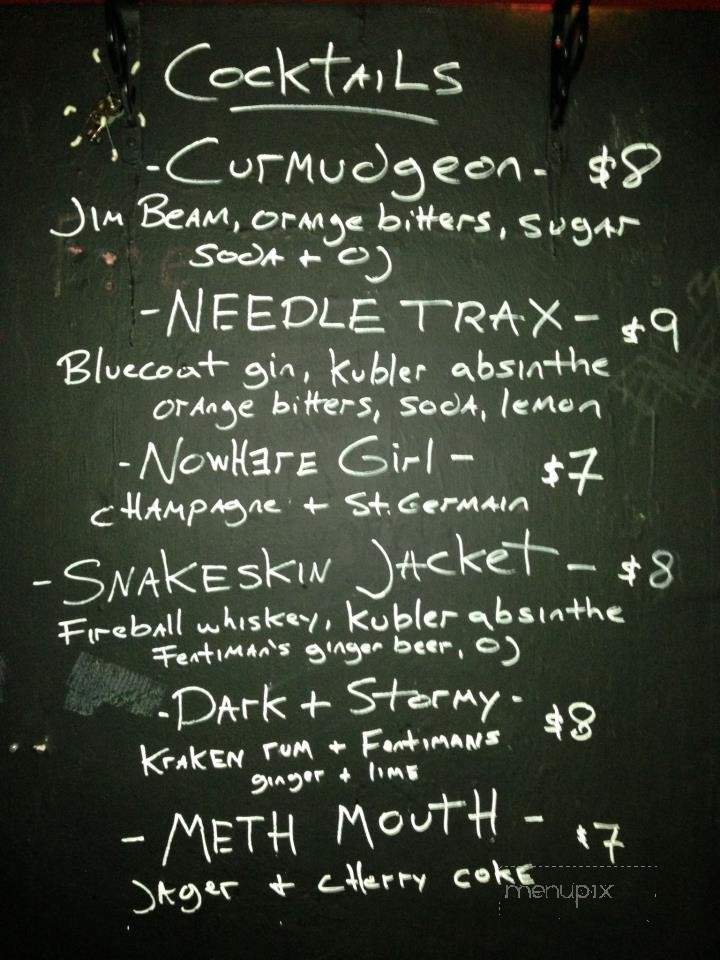 Cocktails
-Curmudgeon- $8
Jim Beam, orange bitters, sugar
soda + OJ
-NEEDLE TRAX- $9
Bluecoat gin, Kubler absinthe
orange bitters, soda, lemon
-Nowhere Girl- $7
Champagne + St. Germain
-Snakeskin Jacket- $8
Fireball whiskey, Kubler absinthe
Fentiman's ginger beer, OJ
-Dark + Stormy- $8
Kraken rum + Fentimans
ginger + lime
-METH MOUTH- $7
Jager + cherry coke
menupix